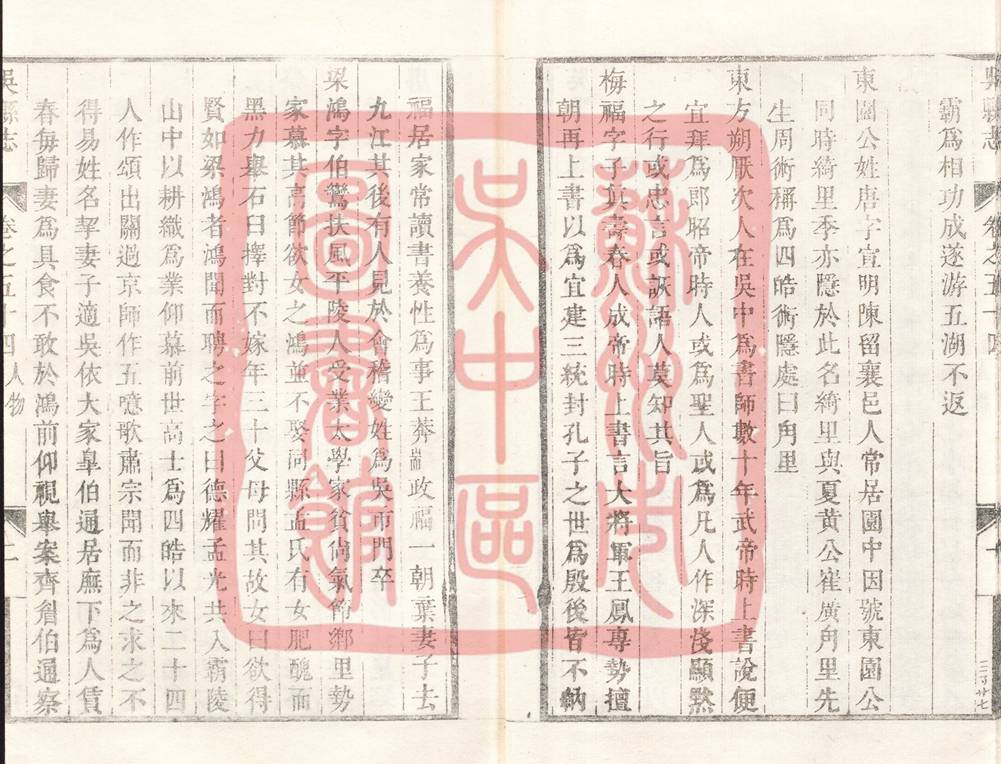 吳縣志
卷之五十四
三百廿七
霸爲相功成遂游五湖不返
東園公姓唐字宣明陳留襄邑人常居園中因號東園公
同時綺里季亦隱於此名綺里與夏黄公崔廣角里先
生周術稱爲四皓術隱處曰角里
東方朔厭次人在吳中爲書師數十年武帝時上書說便
宜拜爲郎昭帝時人或爲聖人或爲凡人作深淺顯默
之行或忠言或詼語人莫知其旨
梅福字子真壽春人成帝時上書言大將軍王鳳專勢擅
朝再上書以爲宜建三統封孔子之世爲殷後皆不納
福居家常讀書養性爲事王莽耑政福一朝棄妻子去
九江其後有人見於會稽變姓爲吳市門卒
梁鴻字伯鸞扶風平陵人受業太學家貧尙氣節鄉里勢
家慕其高節欲女之鴻並不娶同縣孟氏有女肥醜而
黑力舉石臼擇對不嫁年三十父母問其故女曰欲得
賢如梁鴻者鴻聞而聘之字之曰德耀孟光共入霸陵
山中以耕織爲業仰慕前世高士爲四皓以來二十四
人作頌出關過京師作五噫歌肅宗聞而非之求之不
得易姓名挈妻子適吳依大家臯伯通居廡下爲人賃
春每歸妻爲具食不敢於鴻前仰視舉案齊眉伯通察
吳縣志
卷之五十四
人物
二
蘇州市
吳中區
圖書館